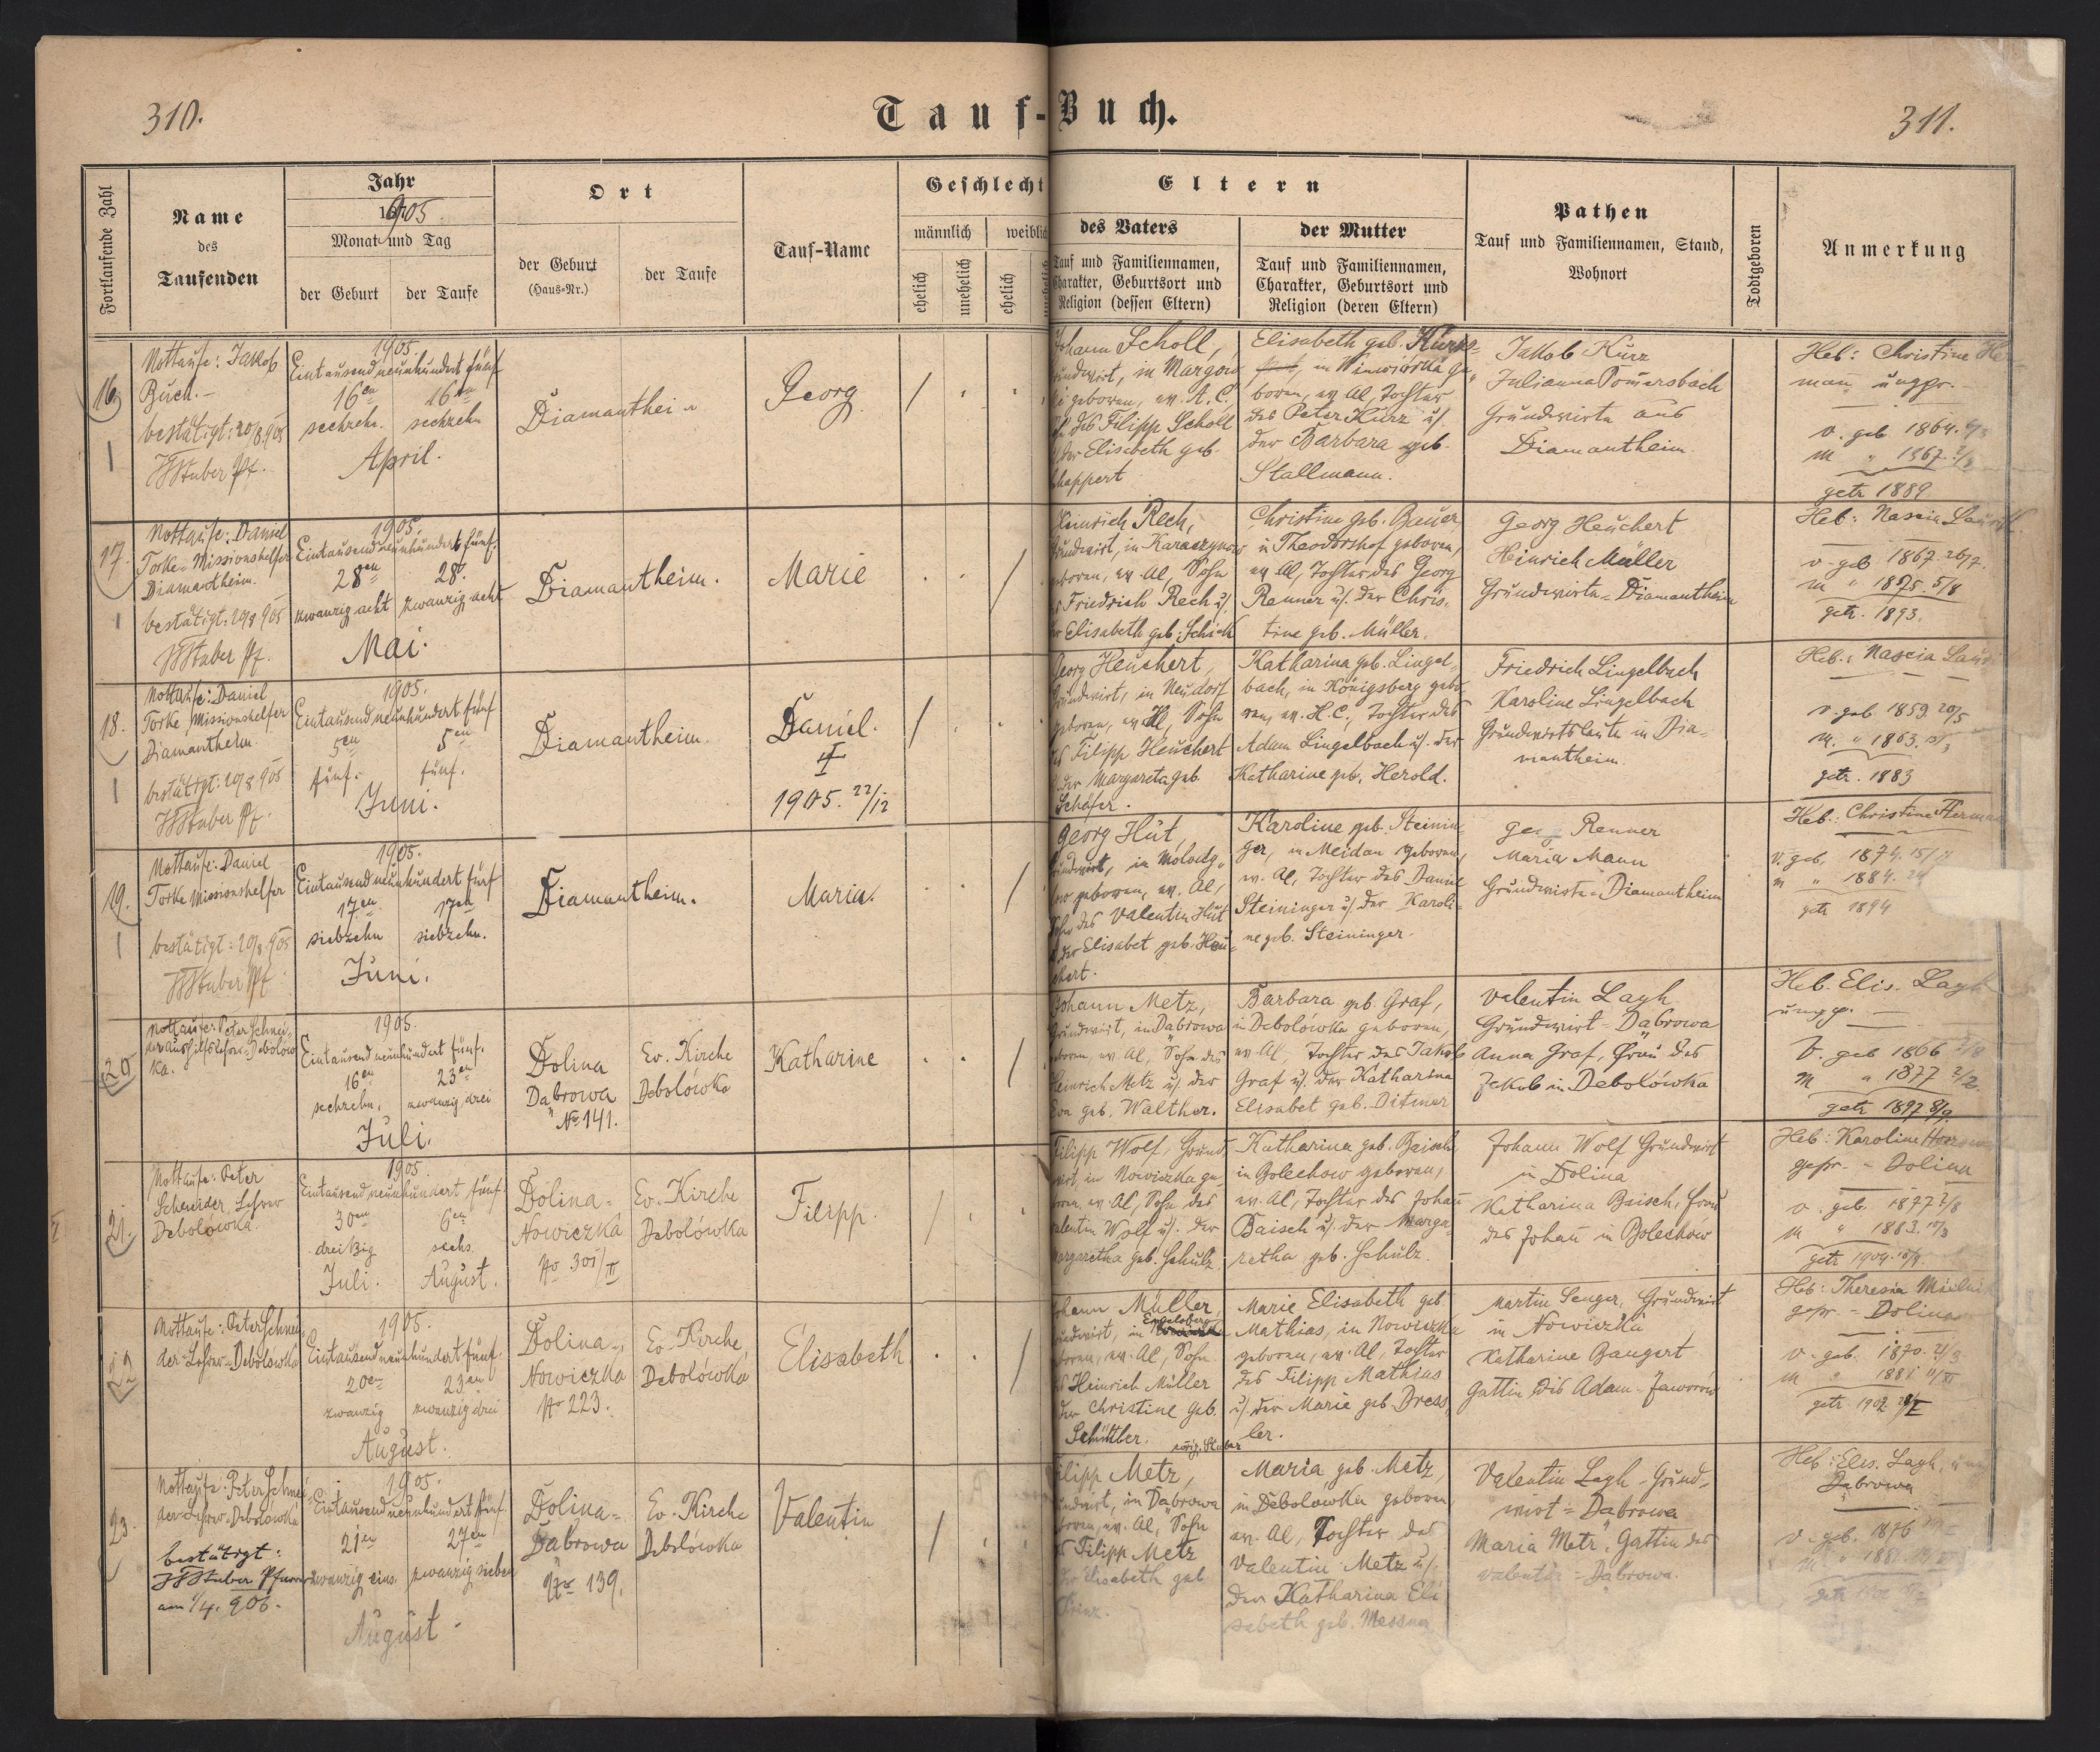 310.
Tauf-Buch.
311.
Fortlaufende Zahl
Name
des
Taufenden
Jahr
1905.
Monat und Tag
der Geburt
der Taufe
Ort
der Geburt
(Haus-Nr.)
der Taufe
Tauf-Name
Geschlecht
männlich
weiblich
ehelich
unehelich
ehelich
Eltern
des Vaters
Tauf und Familiennamen,
Charakter, Geburtsort und
Religion (dessen Eltern)
der Mutter
Tauf und Familiennamen,
Charakter, Geburtsort und
Religion (deren Eltern)
Pathen
Tauf und Familiennamen, Stand,
Wohnort
Todtgeboren
Anmerkung
16
Nottaufe: Jakob
Buch.-
bestätigt: 20/8 905
Stuber Pf.
1905.
Eintausendneunhundert fünf
16en 16en
sechzehn. sechzehn
April.
Diamantheim
Georg
Johann Scholl,
Grundwirt, in
geboren, ev. A.C.
des Filipp Scholl
der Elisabeth geb.
Schappert
Elisabeth geb. Kurz
in
boren, ev Al, Tochter
des Peter Kurz u/.
der Barbara geb.
Stallmann.
Jakob Kurz
Julianna Pomersbach
Grundwirte aus
Diamantheim.
Heb: Christine
mann ungpr.
v. geb 1864.
m " 1867.
getr 1889
17.
Nottaufe: Daniel
Torke-Missionshelfer
Diamantheim.
bestätigt: 20/8 905
Stuber Pf.
1905.
Eintausendneunhundert fünf.
28en 28.
zwanzig acht zwanzig acht
Mai.
Diamantheim.
Marie
Heinrich Rech,
Grundwirt, in Karaczynow
geboren, ev Al, Sohn
Friedrich Rech u/.
Elisabeth geb. Schick
Christine geb. Bauer
in Theodorshof geboren,
ev Al, Tochter des Georg
Renner u/. der Chris-
tine geb. Müller.
Georg Heuchert
Heinrich Müller
Grundwirte-Diamantheim
Heb: Nascia
v. geb 1867. 26/7.
m " 1875. 5/8
getr. 1893.
18.
Nottaufe: Daniel
Torke Missionshelfer
Diamantheim.
bestätigt: 20/8 905
Stuber Pf.
1905.
Eintausendneunhundert fünf
5en 5en
fünf. fünf.
Juni.
Diamantheim.
Daniel.
1905. 22/12
Georg Heuchert,
Grundwirt, in Neudorf
geboren, ev H, Sohn
des Filipp Heuchert
der Margareta geb.
Schäfer.
Katharina geb. Lingel-
bach, in Königsberg gebo-
ren, ev. H.C., Tochter des
Adam Lingelbach u/. der
Katharine geb. Herold.
Friedrich Lingelbach
Karoline Lingelbach
Grundwirtsleute in Dia-
mantheim.
Heb.: Nascia
v. geb. 1859. 20/5
m. " 1863.
getr. 1883
19.
Nottaufe: Daniel
Torke Missionshelfer
bestätigt: 20/8 905
Stuber Pf
1905.
Eintausendneunhundert fünf
17en 17en
siebzehn siebzehn.
Juni.
Diamantheim.
Maria.
Georg Hut,
Grundwirt, in Molody-
geboren, ev. Al,
Sohn des Valentin Hut
der Elisabet geb. Heu-
chert.
Karoline geb. Steinin-
ger, in Meidan geboren,
ev. Al, Tochter des Daniel
Steininger u/. der Karoli-
ne geb. Steininger.
Renner
Maria Mann
Grundwirte-Diamantheim
Heb: Christine Herman
v. geb. 1874.
m " 1884.
getr 1894
20
Nottaufe: Peter Schnei-
der Aushilfslehrer-Debolow-
ka.
1905.
Eintausendneunhundert fünf.
16en 23en
sechzehn. zwanzig drei
Juli.
Dolina
Dąbrowa
No 141.
Ev. Kirche
Debolówka
Katharine
Johann Metz,
Grundwirt, in Dąbrowa
geboren, ev. Al, Sohn des
Heinrich Metz u/. der
Eva geb. Walther.
Barbara geb. Graf,
in Debolówka geboren,
ev. Al, Tochter des Jakob
Graf u/. der Katharina
Elisabet geb. Ditmer
Valentin Layh
Grundwirt-Dąbrowa
Anna Graf, Frau des
Jakob in Debolówka
Heb. Elis. Layh
ungpr.
v. geb 1866
m " 1877 2/2.
getr 1897 8/9.
21.
Nottaufe: Peter
Schneider, Lehrer
Debolówka.
1905.
Eintausendneunhundert fünf.
30en 6en
dreißig sechs.
Juli. August.
Dolina-
Nowiczka
No 301/II
Ev. Kirche
Debolówka
Filipp.
Filipp Wolf, Grund-
wirt, in Nowiczka ge-
boren, ev Al, Sohn des
Valentin Wolf u/. der
Margaretha geb. Schulz.
Katharina geb. Baisch
in Bolechow geboren,
ev. Al, Tochter des Johann
Baisch u/. der Marga-
retha geb. Schulz.
Johann Wolf Grundwirt
in Dolina
Katharina Baisch, Frau
des Johann in Bolechów
Heb: Karoline
gepr. - Dolina
v. geb. 1877 2/8
m " 1883.
getr 1904.
22
Nottaufe: Peter Schnei-
der-Lehrer-Debolowka
1905.
Eintausendneunhundert fünf.
20en 23en
zwanzig zwanzig drei
August.
Dolina-,
Nowiczka
No 223.
Ev. Kirche,
Debolówka
Elisabeth
Johann Müller,
Grundwirt, in Engelsberg
geboren, ev. Al, Sohn
Heinrich Müller
der Christine geb.
Schüttler.
Marie Elisabeth geb.
Mathias, in Nowiczka
geboren, ev. Al, Tochter
des Filipp Mathias
u/. der Marie geb Dress-
ler.
Martin Senger, Grundwirt
in Nowiczka
Katharine Bangert
Gattin des Adam - Jaworów
Heb: Theresia
gepr - Dolina
v. geb. 1870.
m " 1881
getr. 1902
23.
Nottaufe: Peter Schnei-
der-Lehrer-Debolówka
bestätigt:
Stuber Pfarrer
am 1/4. 906.
1905.
Eintausendneunhundert fünf.
21en 27en
zwanzig eins. zwanzig sieben
August.
Dolina-
Dąbrowa
No 139.
Ev. Kirche
Debolówka
Valentin
Filipp Metz,
Grundwirt, in Dąbrowa
geboren, ev. Al, Sohn
Filipp Metz
der Elisabeth geb
Maria geb. Metz,
in Debolówka geboren
ev. Al, Tochter des
Valentin Metz u/.
der Katharina Eli-
sabeth geb. Messner
Valentin Layh - Grund-
wirt = Dąbrowa
Maria Metz, Gattin des
Valentin - Dąbrowa.
Heb: Elis. Layh,
Dąbrowa
v. geb. 1876
m " 1881
getr